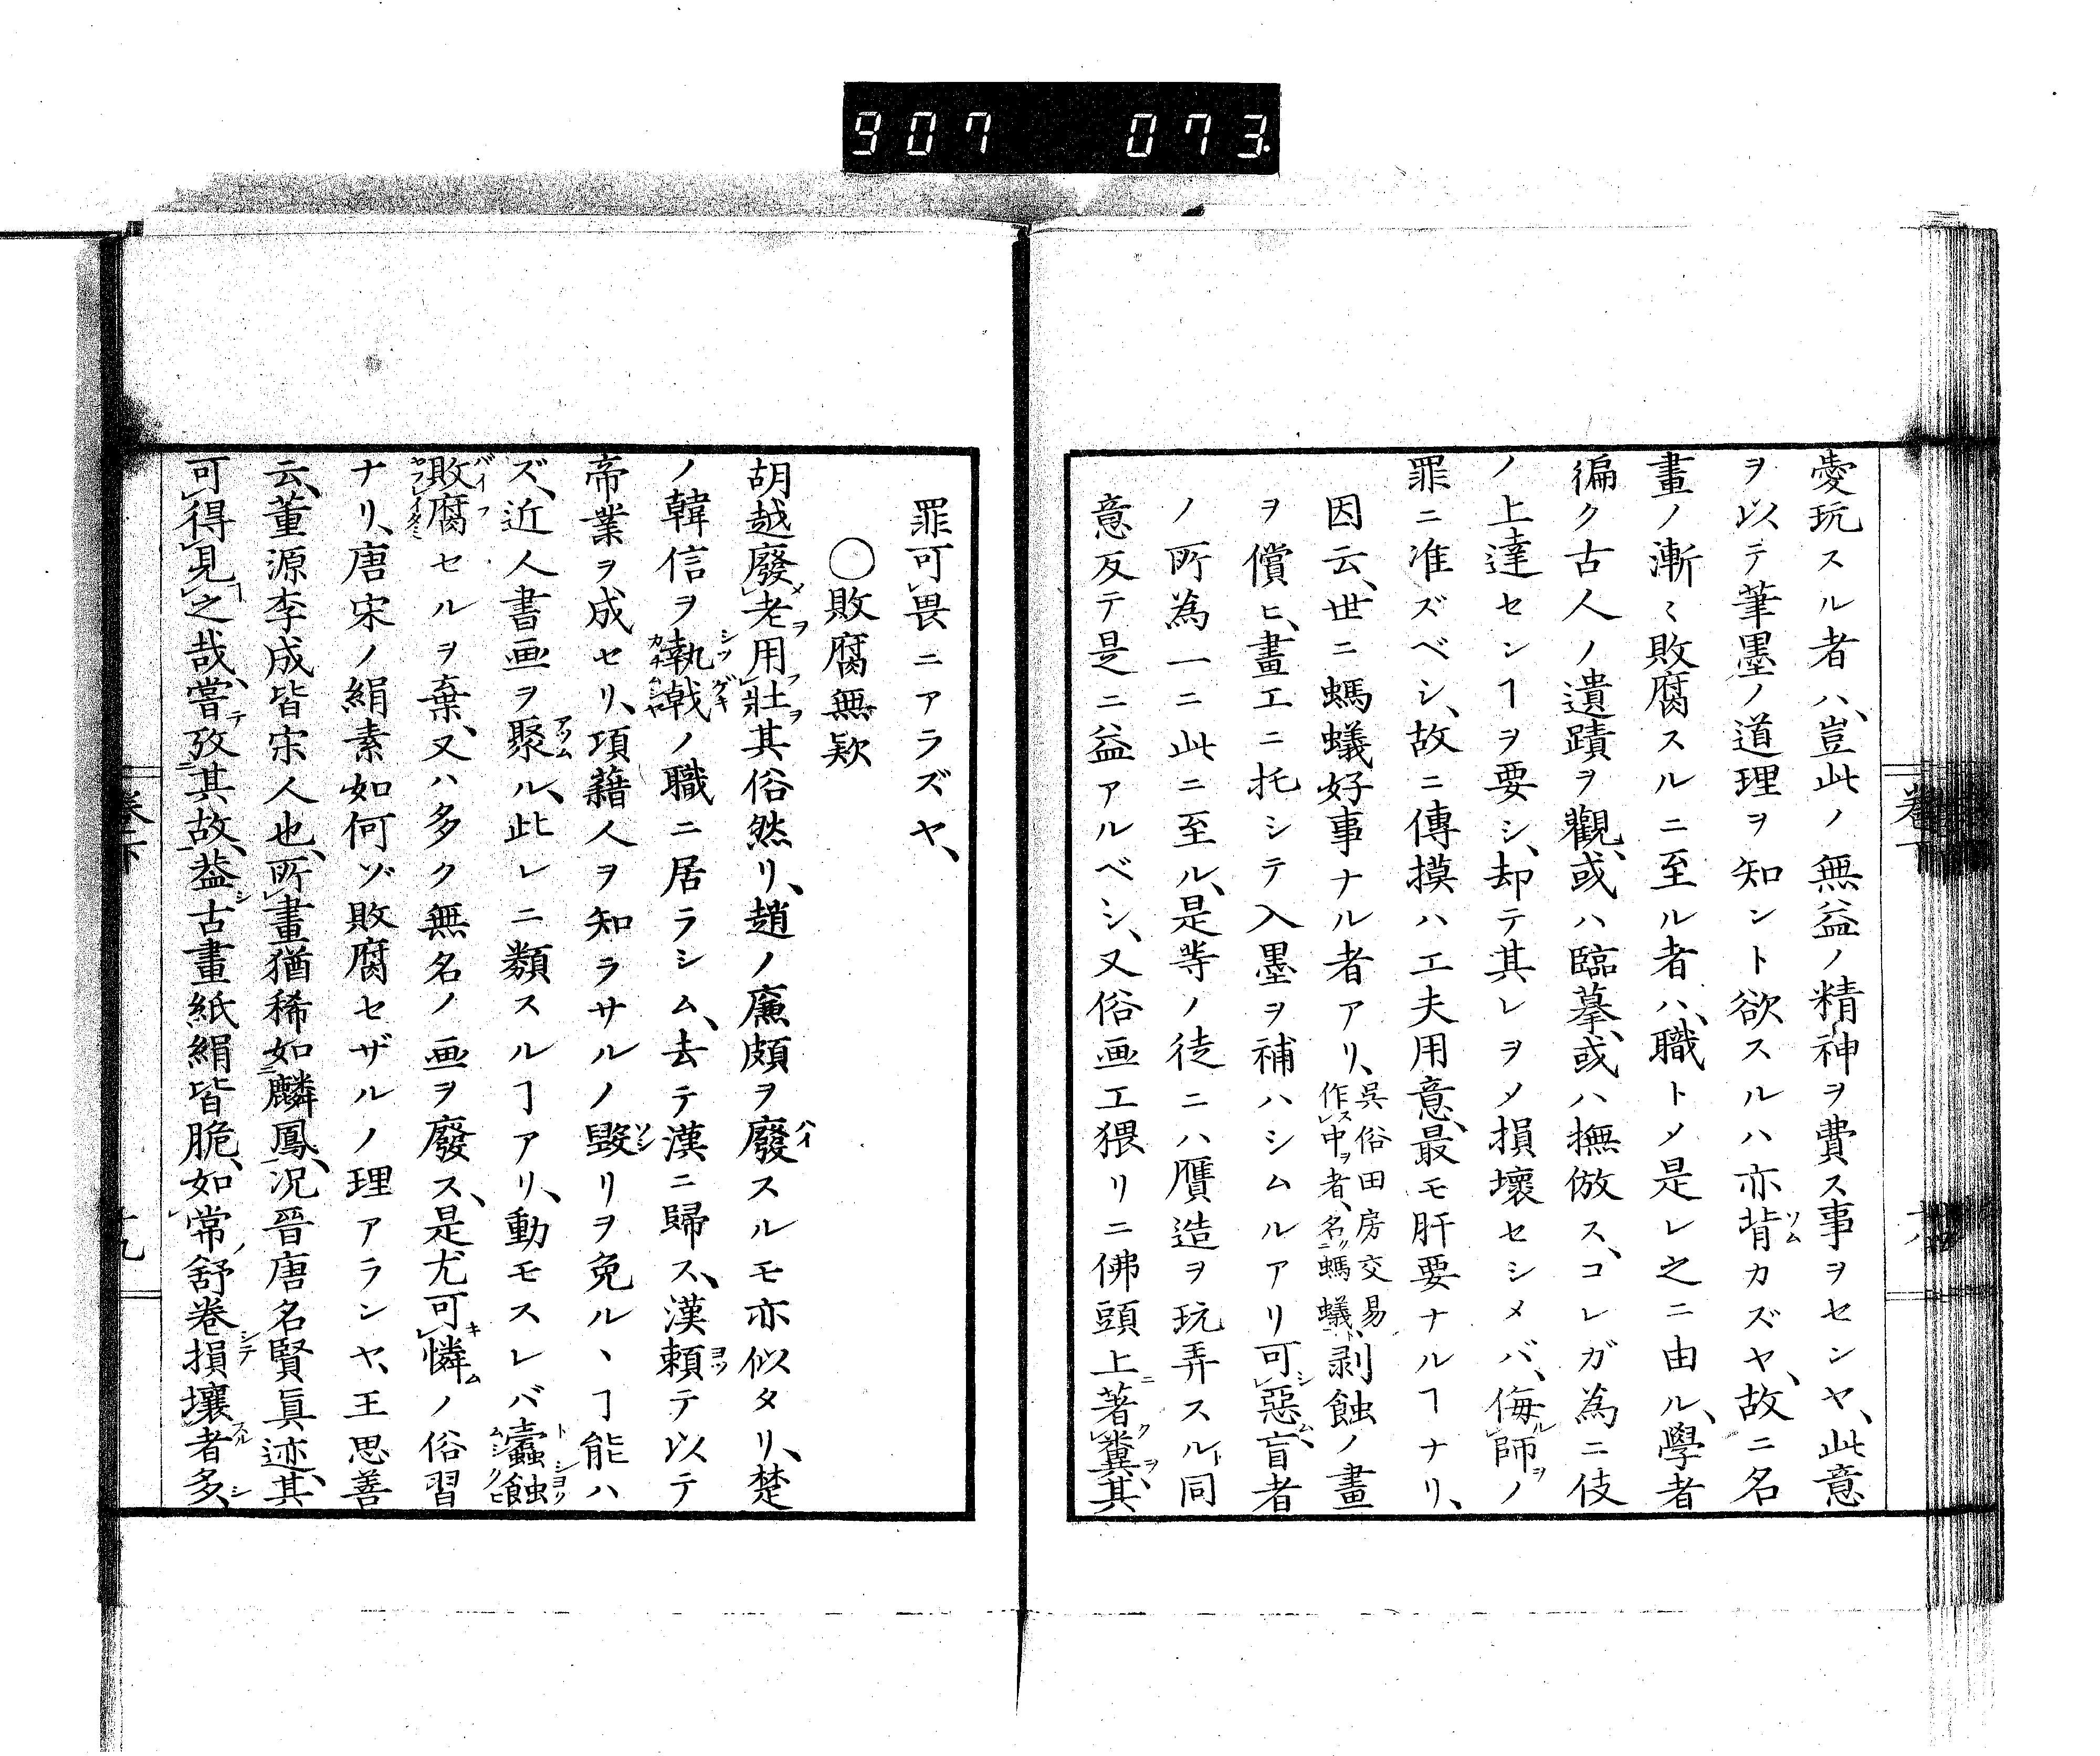 907 073
愛玩スル者ハ、豈此ノ無益ノ精神ヲ費ス事ヲセンヤ、此意
ヲ以テ筆墨ノ道理ヲ知ント欲スルハ亦背カズヤ、故ニ名
畫ノ漸〻敗腐スルニ至ル者ハ、職トメ是レ之ニ由ル、學者
徧ク古人ノ遺蹟ヲ觀、或ハ臨摹、或ハ撫倣ス、コレガ為ニ伎
ノ上達センヿヲ要シ、却テ其レヲメ損壞セシメバ、侮師ノ
罪ニ准ズベシ、故ニ傳摸ハ工夫用意、最モ肝要ナルヿナリ、
因云、世ニ螞蟻好事ナル者アリ、呉俗田房交易作中者、名螞蟻、剥蝕ノ畫
ヲ償ヒ、畫工ニ托シテ入墨ヲ補ハシムルアリ可惡、盲者
ノ所為一ニ此ニ至ル、是等ノ徒ニハ贋造ヲ玩弄スル同
意反テ是ニ益アルベシ、又俗画工猥リニ佛頭上著糞、其
罪可畏ニアラズヤ、
〇敗腐無欵
胡越廢老用壯其俗然リ、趙ノ廉頗ヲ廢スルモ亦似タリ、楚
ノ韓信ヲ執戟ノ職ニ居ラシム、去テ漢ニ歸ス、漢頼テ以テ
帝業ヲ成セリ、項藉人ヲ知ラサルノ毀リヲ免ル、ヿ能ハ
ズ、近人書画ヲ聚ル、此レニ類スルヿアリ、動モスレバ蠹蝕
敗腐セルヲ棄、又ハ多ク無名ノ画ヲ廢ス、是尤可憐ノ俗習
ナリ、唐宋ノ絹素如何ゾ敗腐セザルノ理アランヤ、王思善
云、董源李成皆宋人也、所畫猶稀如麟鳳、况晉唐名賢眞迹、其
可得見之哉、嘗攷其故、葢古畫紙絹皆脆、如常舒卷損壤者多、
卷下
十九